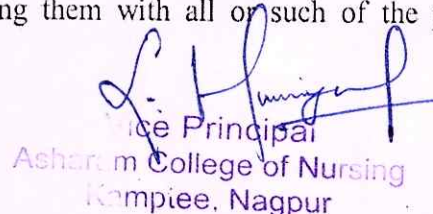 ing them with all or such of the
Vice Principal
Asharam College of Nursing
Kamptee, Nagpur